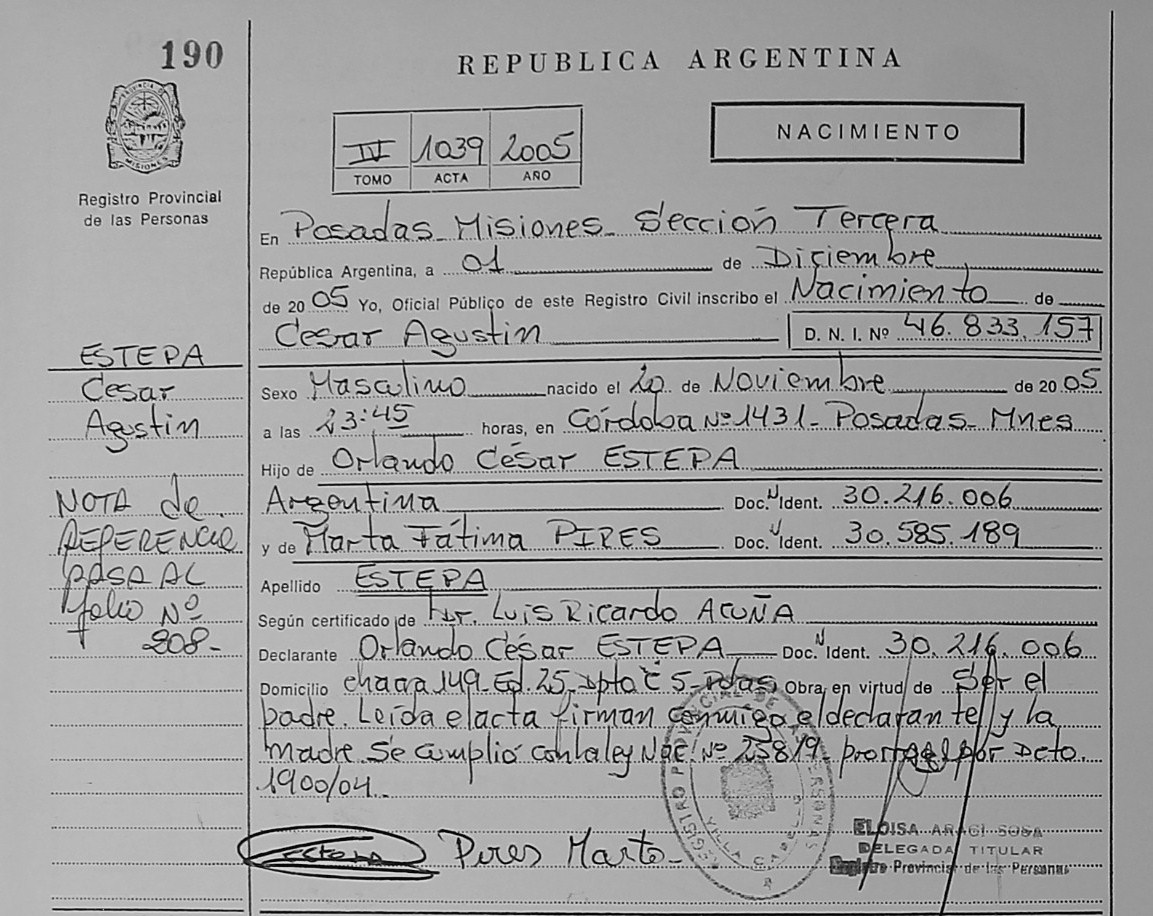 190
REPUBLICA ARGENTINA
NACIMIENTO
IV 1039 2005
TOMO ACTA AÑO
PROVINCIA DE MISIONES
Registro Provincial
de las Personas
En Posadas Misiones Sección Tercera
República Argentina, a 01 de Diciembre
de 2005 Yo, Oficial Público de este Registro Civil inscribo el Nacimiento de
Cesar Agustin D. N. I. Nº 46.833.157
ESTEPA
Cesar
Agustin
Sexo Masculino nacido el 20 de Noviembre de 2005
a las 23:45 horas, en Córdoba Nº 1431- Posadas- Mnes
Hijo de Orlando César ESTEPA
Argentina Doc. N Ident. 30.216.006
y de Marta Fátima PIRES Doc. Ident. 30.585.189
NOTA de
REFERENCIA
PASA AL
folio Nº
208-
Apellido ESTEPA
Según certificado de Dr. Luis Ricardo ACUÑA
Declarante Orlando César ESTEPA Doc. N Ident. 30.216.006
Domicilio chacra 149- Ed. 25- Dpto C 5- Pdas Obra en virtud de Ser el
padre. Leída el acta firman conmigo el declarante y la
madre. Se cumplió con la ley Nac. Nº 25819 por Dcto.
1900/04.
Pires Marta
REGISTRO PROVINCIAL DE LAS PERSONAS
VILLA CABELLO
ELOISA ARACI SOSA
DELEGADA TITULAR
Registro Provincial de las Personas